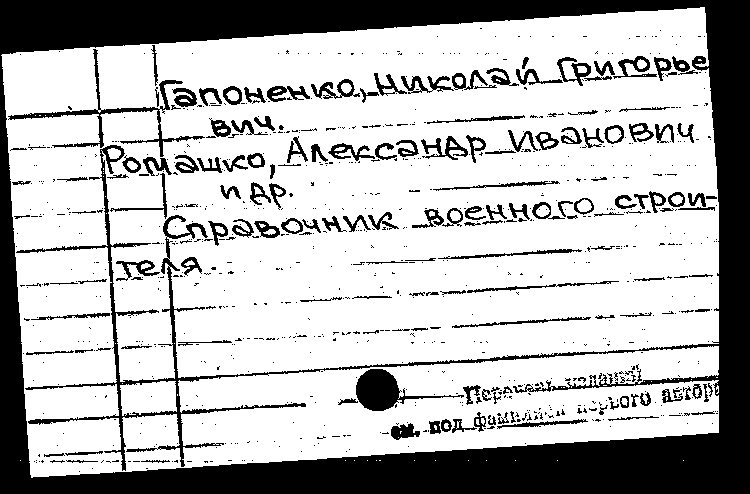 Гапоненко, Николай Григорье
вич.
Ромашко, Александр Иванович
и др.
Справочник военного строи-
теля.
Перечень изданий
см. под фамилией первого автора